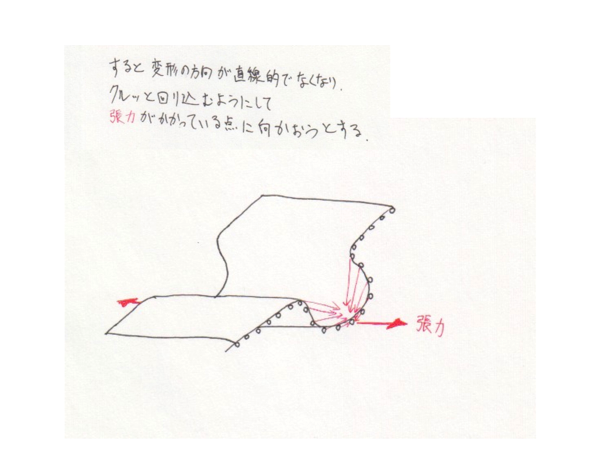 すると変形の方向が直線的でなくなり、
クルッと回り込むようにして
張力がかかっている点に向かおうとする.
張力